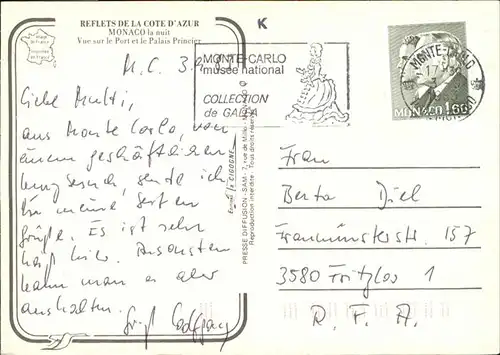 REFLETS DE LA COTE D'AZUR
MONACO la nuit
Vue sur le Port et le Palais Princier
K
MONTE-CARLO
musée national
COLLECTION
de GALEA
MONTE-CARLO
17
MONACO 1,60
M. C. 3.
Liebe Mutti,
aus Monte Carlo, von
einem geschäftlichen
sende ich
Dir meine
Grüße. Es ist sehr
heiß hier. Ansonsten
kann man es aber
aushalten.
PRESSE DIFFUSION - SAM - 7, rue de Millo - MONACO
Reproduction interdite - Tous droits réservés
Frau
Berta Diel
Fraumünsterstr. 157
3580 Fritzlar 1
R. F. A.